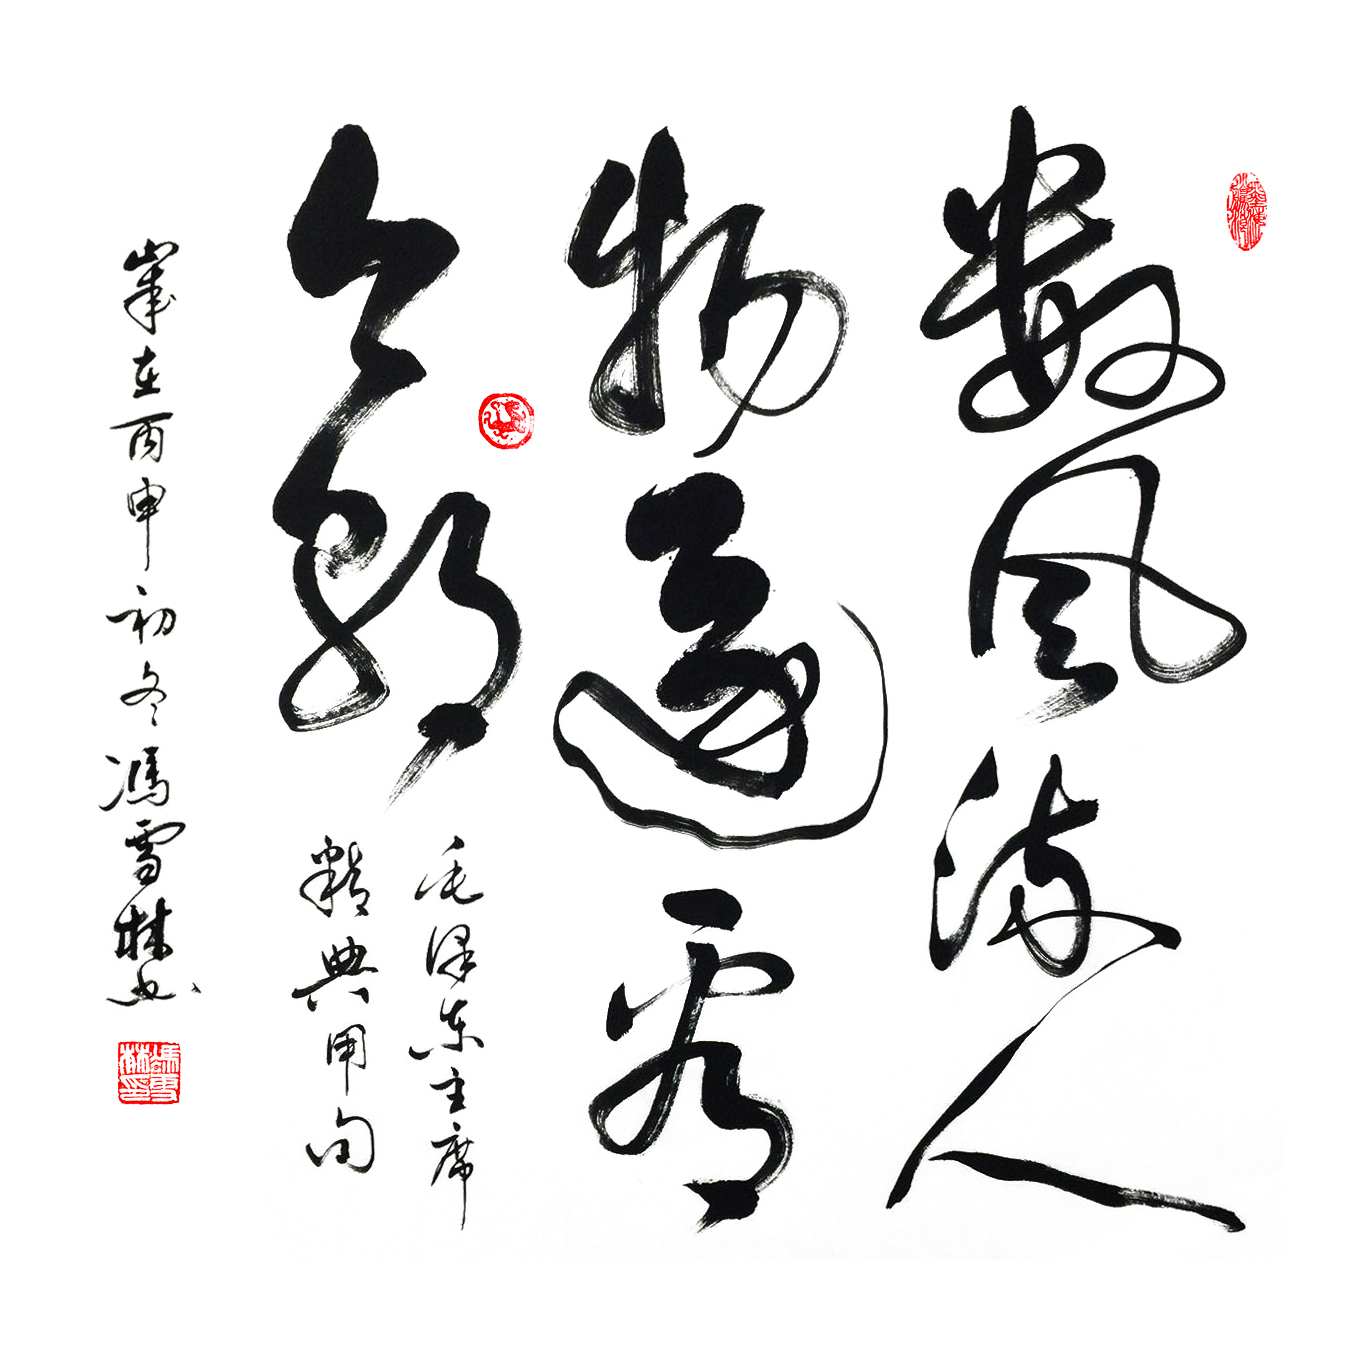 数风流人
物还看
今朝
毛泽东主席
精典用句
峯在丙申初冬冯雪林书
冯雪林印